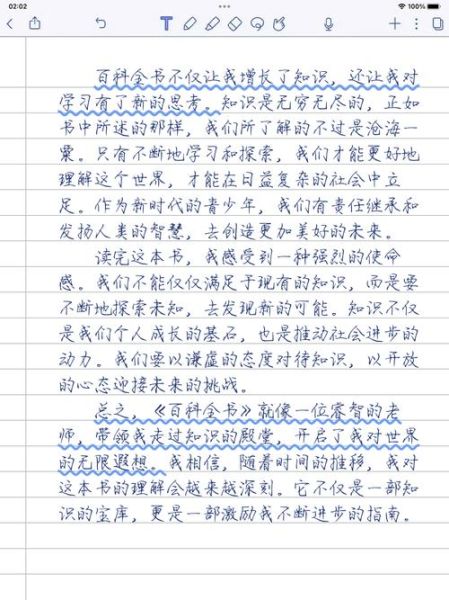 02:02
百科全书不仅让我增长了知识，还让我对
学习有了新的思考。知识是无穷无尽的，正如
书中所述的那样，我们所了解的不过是沧海一
粟。只有不断地学习和探索，我们才能更好地
理解这个世界，才能在日益复杂的社会中立
足。作为新时代的青少年，我们有责任继承和
发扬人类的智慧，去创造更加美好的未来。
读完这本书，我感受到一种强烈的使命
感。我们不能仅仅满足于现有的知识，而是要
不断地探索未知，去发现新的可能。知识不仅
是我们个人成长的基石，也是推动社会进步的
动力。我们要以谦虚的态度对待知识，以开放
的心态迎接未来的挑战。
总之，《百科全书》就像一位睿智的老
师，带领我走过知识的殿堂，开启了我对世界
的无限遐想。我相信，随着时间的推移，我对
这本书的理解会越来越深刻。它不仅是一部知
识的宝库，更是一部激励我不断进步的指南。